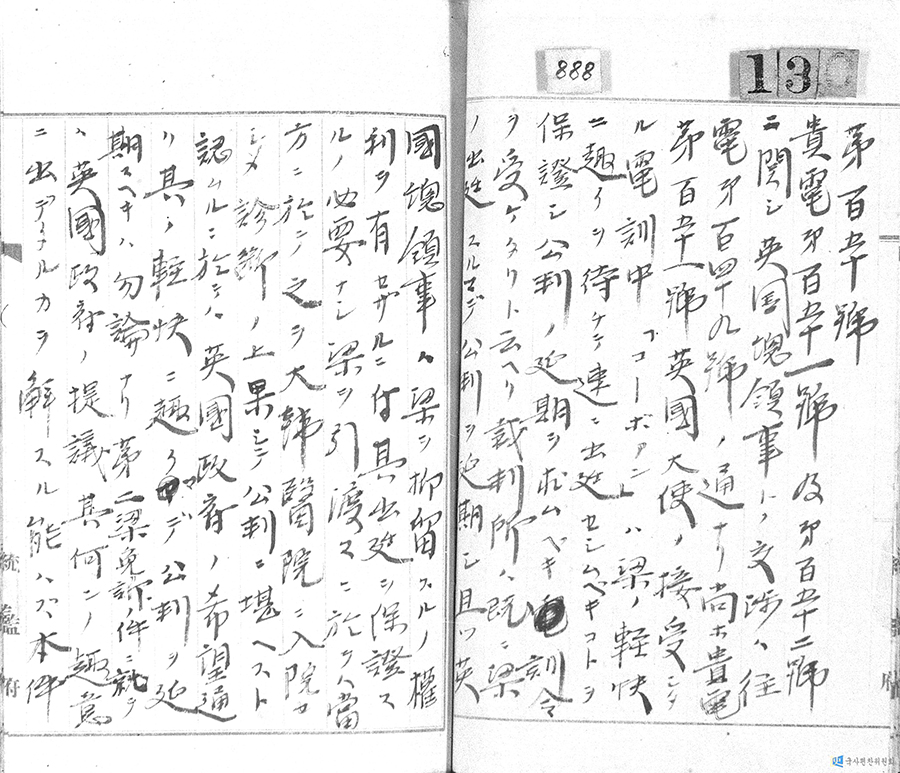 888
130
第百五十號
貴電第百五十一號及第百五十二號
ニ關シ英国総領事トノ交渉ハ往
電第百四十九號ノ通ナリ尚ホ貴電
第百五十一號英國大使ノ接受シタ
ル電訓中「コーボアント」ハ梁ノ軽快
ニ趣クヲ待チテ速ニ出廷セシムヘキコトヲ
保證シ公判ノ延期ヲ求ムベキ訓令
ヲ受ケタリト云ヘリ裁判所ハ既ニ梁
ノ出廷スルマデ公判ヲ延期シ且ツ英
國総領事ハ梁ヲ抑留スルノ權
利ヲ有セザルニ付其出廷ヲ保證ス
ルノ必要ナシ梁ヲ引渡スニ於テハ當
方ニ於テ之ヲ大韓醫院ニ入院セ
シメ診断ノ上果シテ公判ニ堪ヘスト
認ムルニ於テハ英國政府ノ希望通
リ其ノ軽快ニ趣クマデ公判ヲ延
期スヘキハ勿論ナリ第二梁免訴ノ件ニ就テ
ハ英國政府ノ提議其何ンノ趣意
ニ出デタルカヲ解スル能ハズ本件
統監府
국사편찬위원회